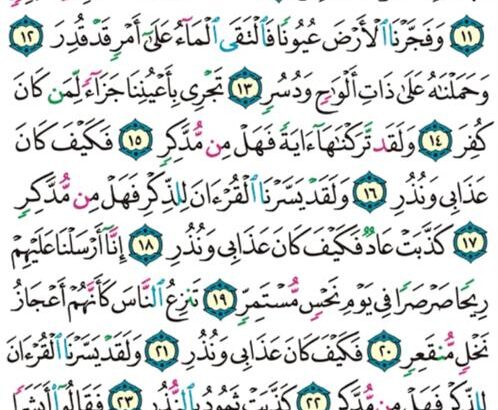 ١١ وَفَجَّرْنَا ٱلْأَرْضَ عُيُونًا فَٱلْتَقَى ٱلْمَآءُ عَلَىٰٓ أَمْرٍ قَدْ قُدِرَ ١٢
وَحَمَلْنَٰهُ عَلَىٰ ذَاتِ أَلْوَٰحٍ وَدُسُرٍ ١٣ تَجْرِى بِأَعْيُنِنَا جَزَآءً لِّمَن كَانَ
كُفِرَ ١٤ وَلَقَد تَّرَكْنَٰهَآ ءَايَةً فَهَلْ مِن مُّدَّكِرٍ ١٥ فَكَيْفَ كَانَ
عَذَابِى وَنُذُرِ ١٦ وَلَقَدْ يَسَّرْنَا ٱلْقُرْءَانَ لِلذِّكْرِ فَهَلْ مِن مُّدَّكِرٍ
١٧ كَذَّبَتْ عَادٌ فَكَيْفَ كَانَ عَذَابِى وَنُذُرِ ١٨ إِنَّآ أَرْسَلْنَا عَلَيْهِمْ
رِيحًا صَرْصَرًا فِى يَوْمِ نَحْسٍ مُّسْتَمِرٍّ ١٩ تَنزِعُ ٱلنَّاسَ كَأَنَّهُمْ أَعْجَازُ
نَخْلٍ مُّنقَعِرٍ ٢٠ فَكَيْفَ كَانَ عَذَابِى وَنُذُرِ ٢١ وَلَقَدْ يَسَّرْنَا ٱلْقُرْءَانَ
لِلذِّكْرِ فَهَلْ مِن مُّدَّكِرٍ ٢٢ كَذَّبَتْ ثَمُودُ بِٱلنُّذُرِ ٢٣ فَقَالُوٓا۟ أَبَشَرًا